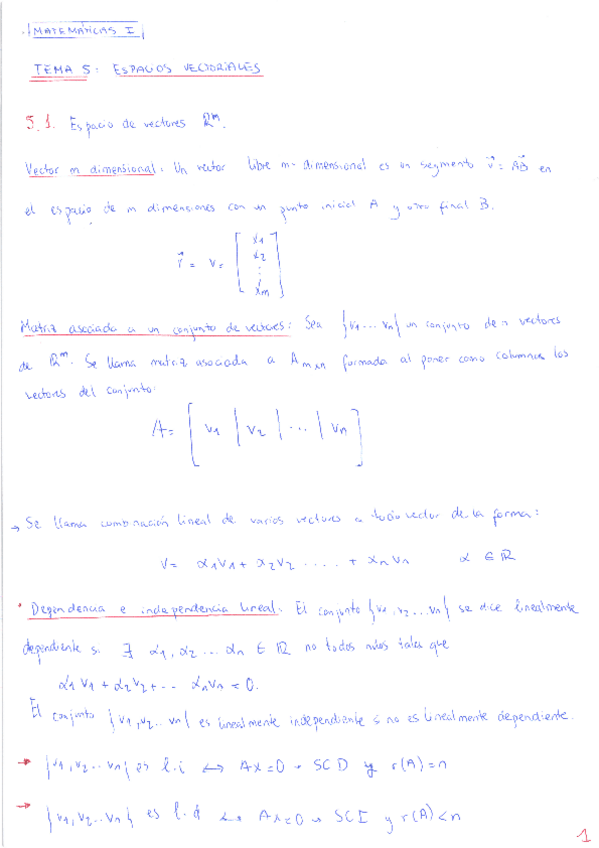 MATEMÁTICAS I
TEMA 5: ESPACIOS VECTORIALES
5.1. Espacio de vectores ℝᵐ.
Vector m dimensional: Un vector libre m-dimensional es un segmento v⃗ = AB⃗ en
el espacio de m dimensiones con un punto inicial A y otro final B.
v⃗ = v = [ x₁ x₂ ⋮ xₘ ]
Matriz asociada a un conjunto de vectores: Sea {v₁ ... vₙ} un conjunto de n vectores
de ℝᵐ. Se llama matriz asociada a Aₘₓₙ formada al poner como columnas los
vectores del conjunto:
A = [ v₁ | v₂ | ... | vₙ ]
→ Se llama combinación lineal de varios vectores a todo vector de la forma:
v = α₁v₁ + α₂v₂ ..... + αₙvₙ α ∈ ℝ
• Dependencia e independencia lineal. El conjunto {v₁, v₂ ... vₙ} se dice linealmente
dependiente si ∃ α₁, α₂ ... αₙ ∈ ℝ no todos nulos tales que
α₁v₁ + α₂v₂ + ... αₙvₙ = 0.
El conjunto {v₁, v₂ .. vₙ} es linealmente independiente si no es linealmente dependiente.
→ {v₁, v₂ ... vₙ} es l.i ⟷ Ax = 0 → SCD y r(A) = n
→ {v₁, v₂ .. vₙ} es l.d ⟷ Ax = 0 → SCI y r(A) < n
1